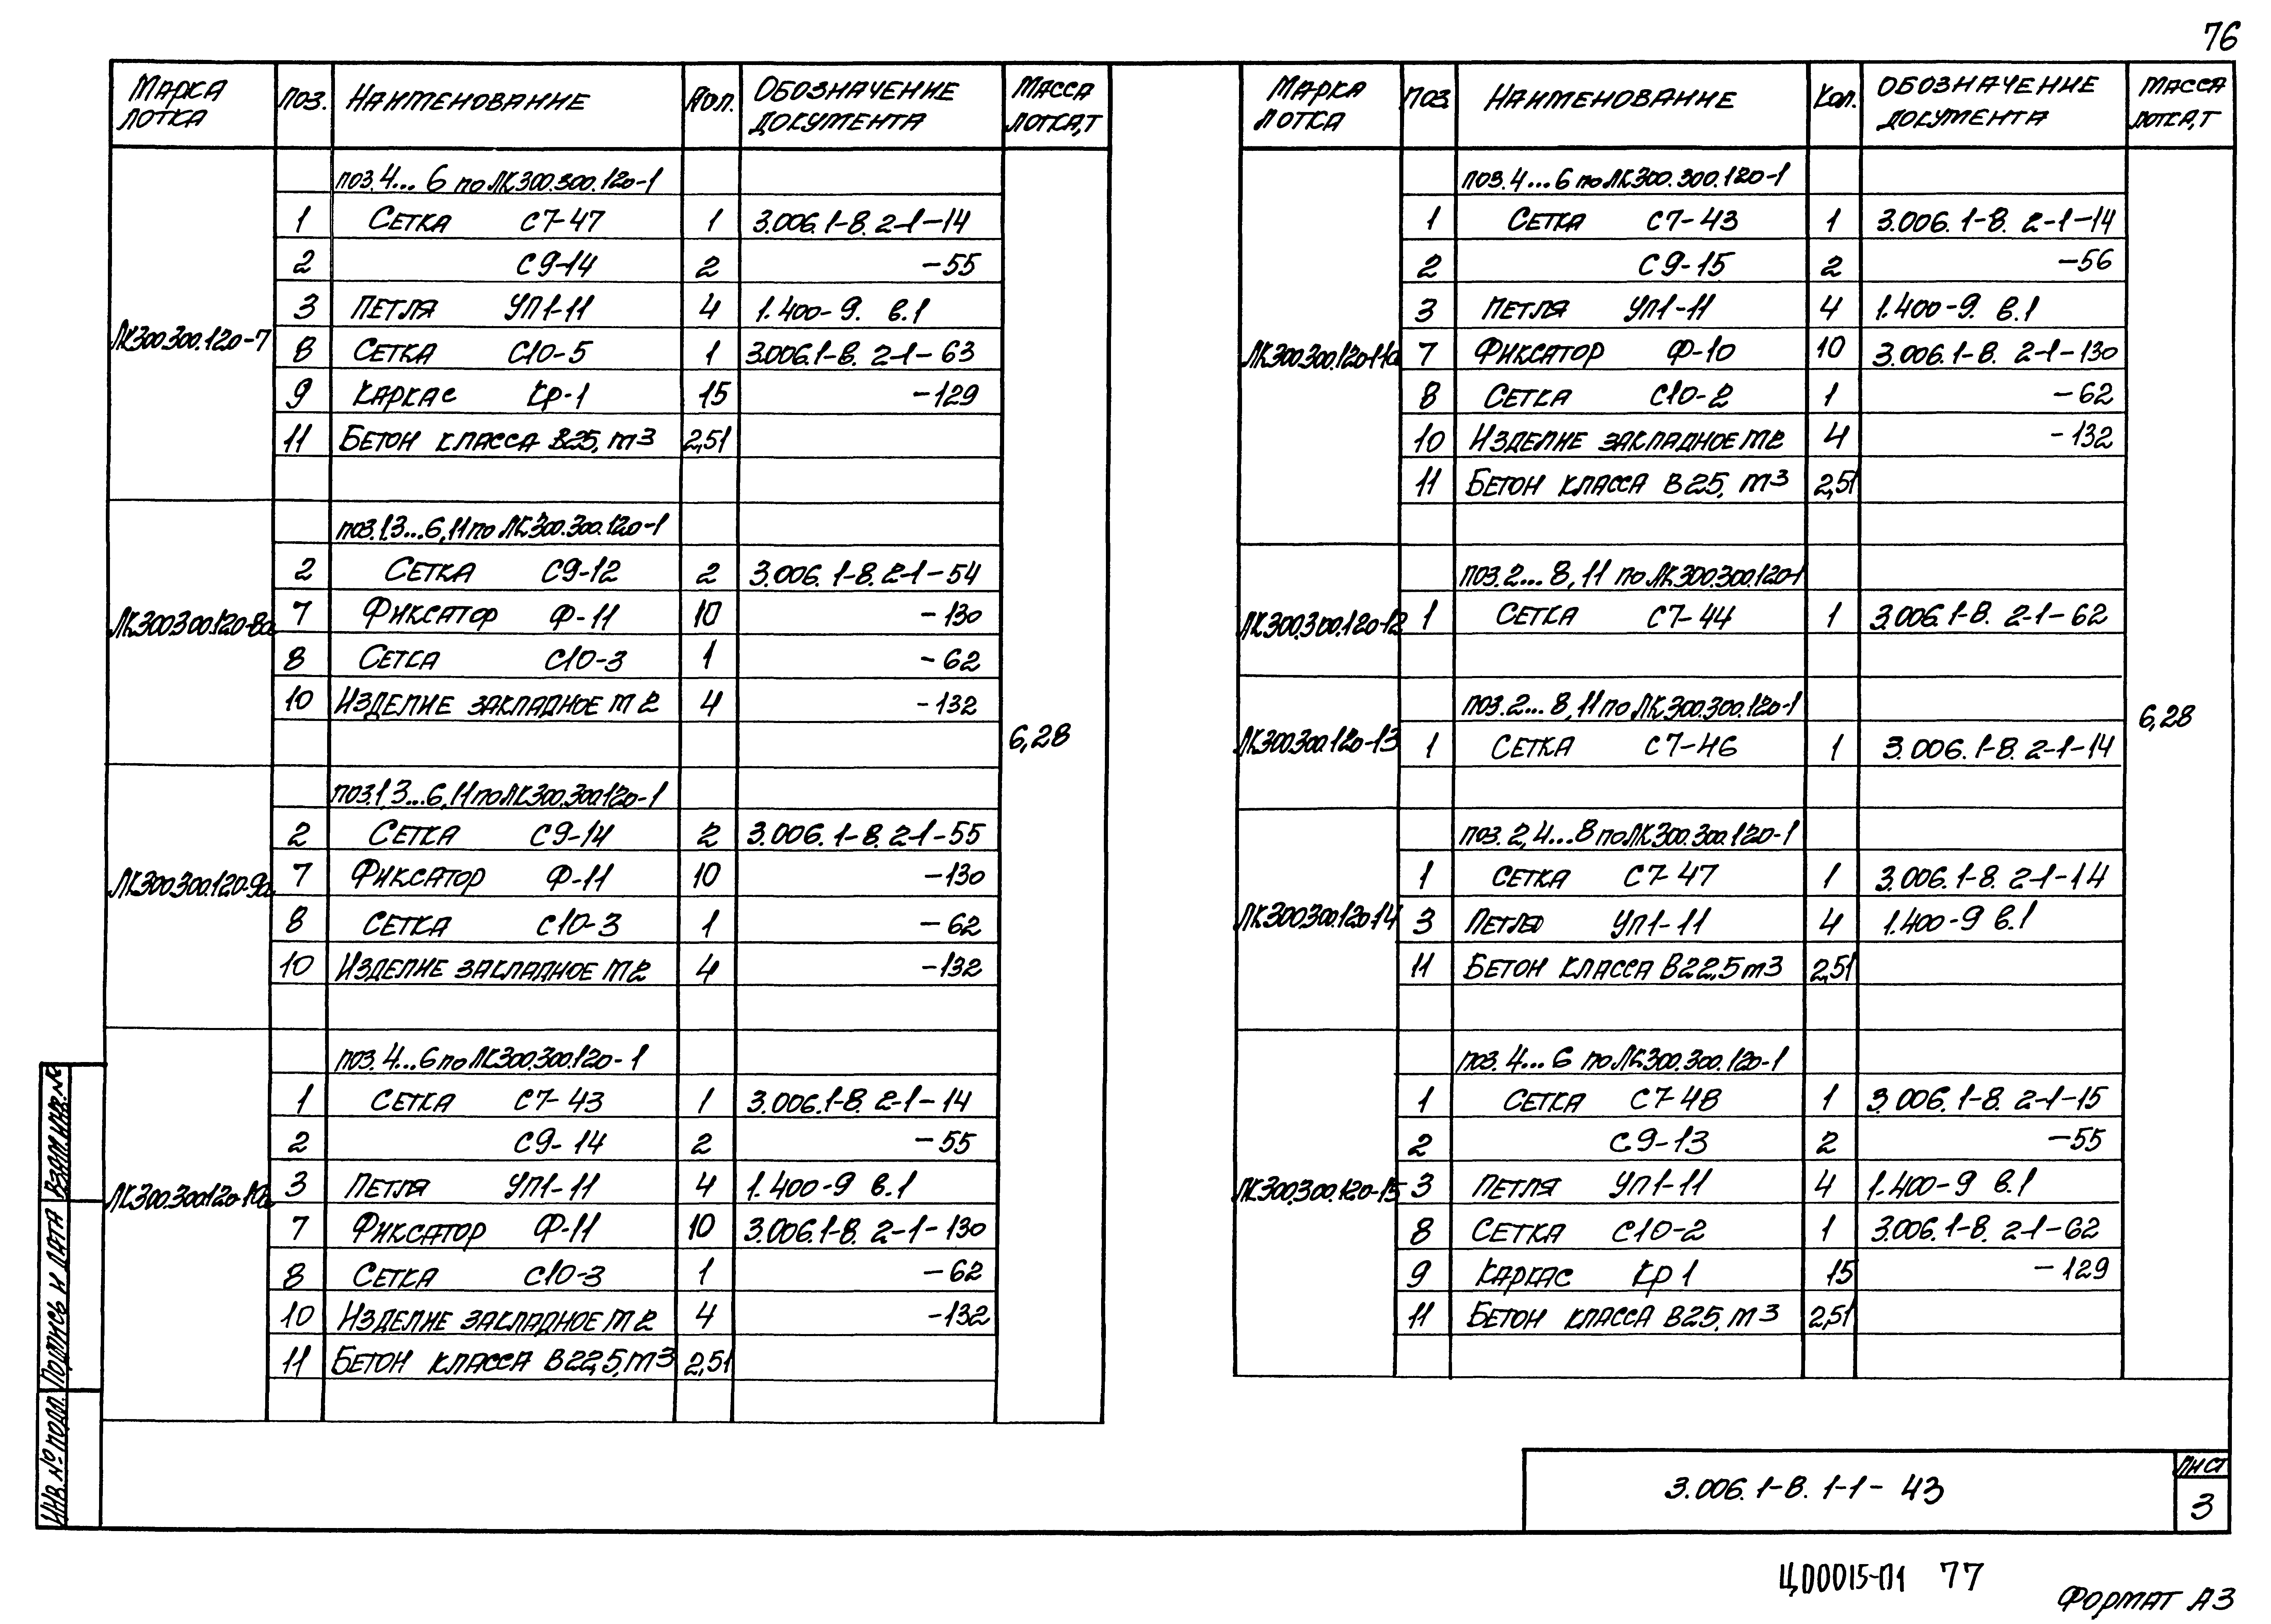 76
Марка лотка | Поз. | Наименование | Кол. | Обозначение документа | Масса лотка, т
ЛК300.300.120-7
поз. 4...6 по ЛК300.300.120-1
1 Сетка С7-47 1 3.006.1-8. 2-1-14
2 С9-14 2 -55
3 Петля УП1-11 4 1.400-9. в.1
8 Сетка С10-5 1 3.006.1-8. 2-1-63
9 Каркас Кр-1 15 -129
11 Бетон класса В25, м3 2,51
ЛК300.300.120-8а
поз. 1,3...6,11 по ЛК300.300.120-1
2 Сетка С9-12 2 3.006.1-8. 2-1-54
7 Фиксатор Ф-11 10 -130
8 Сетка С10-3 1 -62
10 Изделие закладное М2 4 -132
6,28
ЛК300.300.120-9а
поз. 1,3...6,11 по ЛК300.300.120-1
2 Сетка С9-14 2 3.006.1-8. 2-1-55
7 Фиксатор Ф-11 10 -130
8 Сетка С10-3 1 -62
10 Изделие закладное М2 4 -132
ЛК300.300.120-10а
поз. 4...6 по ЛК300.300.120-1
1 Сетка С7-43 1 3.006.1-8. 2-1-14
2 С9-14 2 -55
3 Петля УП1-11 4 1.400-9 в.1
7 Фиксатор Ф-11 10 3.006.1-8. 2-1-130
8 Сетка С10-3 1 -62
10 Изделие закладное М2 4 -132
11 Бетон класса В22,5, м3 2,51
Марка лотка | Поз. | Наименование | Кол. | Обозначение документа | Масса лотка, т
ЛК300.300.120-11а
поз. 4...6 по ЛК300.300.120-1
1 Сетка С7-43 1 3.006.1-8. 2-1-14
2 С9-15 2 -56
3 Петля УП1-11 4 1.400-9. в.1
7 Фиксатор Ф-10 10 3.006.1-8. 2-1-130
8 Сетка С10-2 1 -62
10 Изделие закладное М2 4 -132
11 Бетон класса В25, м3 2,51
ЛК300.300.120-12
поз. 2...8,11 по ЛК300.300.120-1
1 Сетка С7-44 1 3.006.1-8. 2-1-62
ЛК300.300.120-13
поз. 2...8,11 по ЛК300.300.120-1
1 Сетка С7-46 1 3.006.1-8. 2-1-14
6,28
ЛК300.300.120-14
поз. 2,4...8 по ЛК300.300.120-1
1 Сетка С7-47 1 3.006.1-8. 2-1-14
3 Петля УП1-11 4 1.400-9 в.1
11 Бетон класса В22,5 м3 2,51
ЛК300.300.120-15
поз. 4...6 по ЛК300.300.120-1
1 Сетка С7-48 1 3.006.1-8. 2-1-15
2 С9-13 2 -55
3 Петля УП1-11 4 1.400-9 в.1
8 Сетка С10-2 1 3.006.1-8. 2-1-62
9 Каркас Кр1 15 -129
11 Бетон класса В25, м3 2,51
Инв. № подл. Подпись и дата Взам. инв. №
3.006.1-8. 1-1-43
Лист
3
Ц00015-01 77
Формат А3